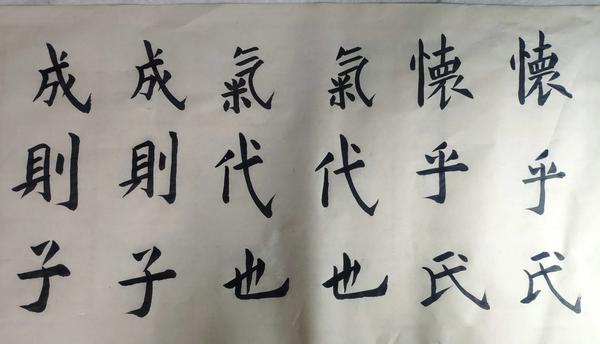 懐乎氏
懐乎氏
氣代也
氣代也
成則子
成則子